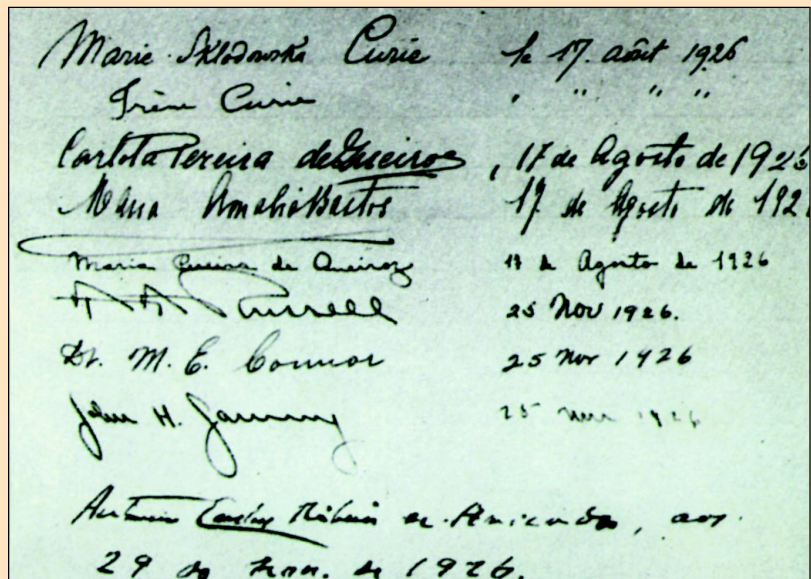 Marie Sklodowska Curie le 17. août 1926
Irène Curie " " " "
Carlota Pereira de Queiroz, 17 de Agosto de 192
Maria Amalia Bastos 17 de Agosto de 192
Maria de Queiroz 17 de Agosto de 1926
25 Nov 1926.
Dr. M. E. Connor 25 Nov 1926
John H. 25 Nov 1926
Antonio Ribeiro de, aos
29 de Nov. de 1926.